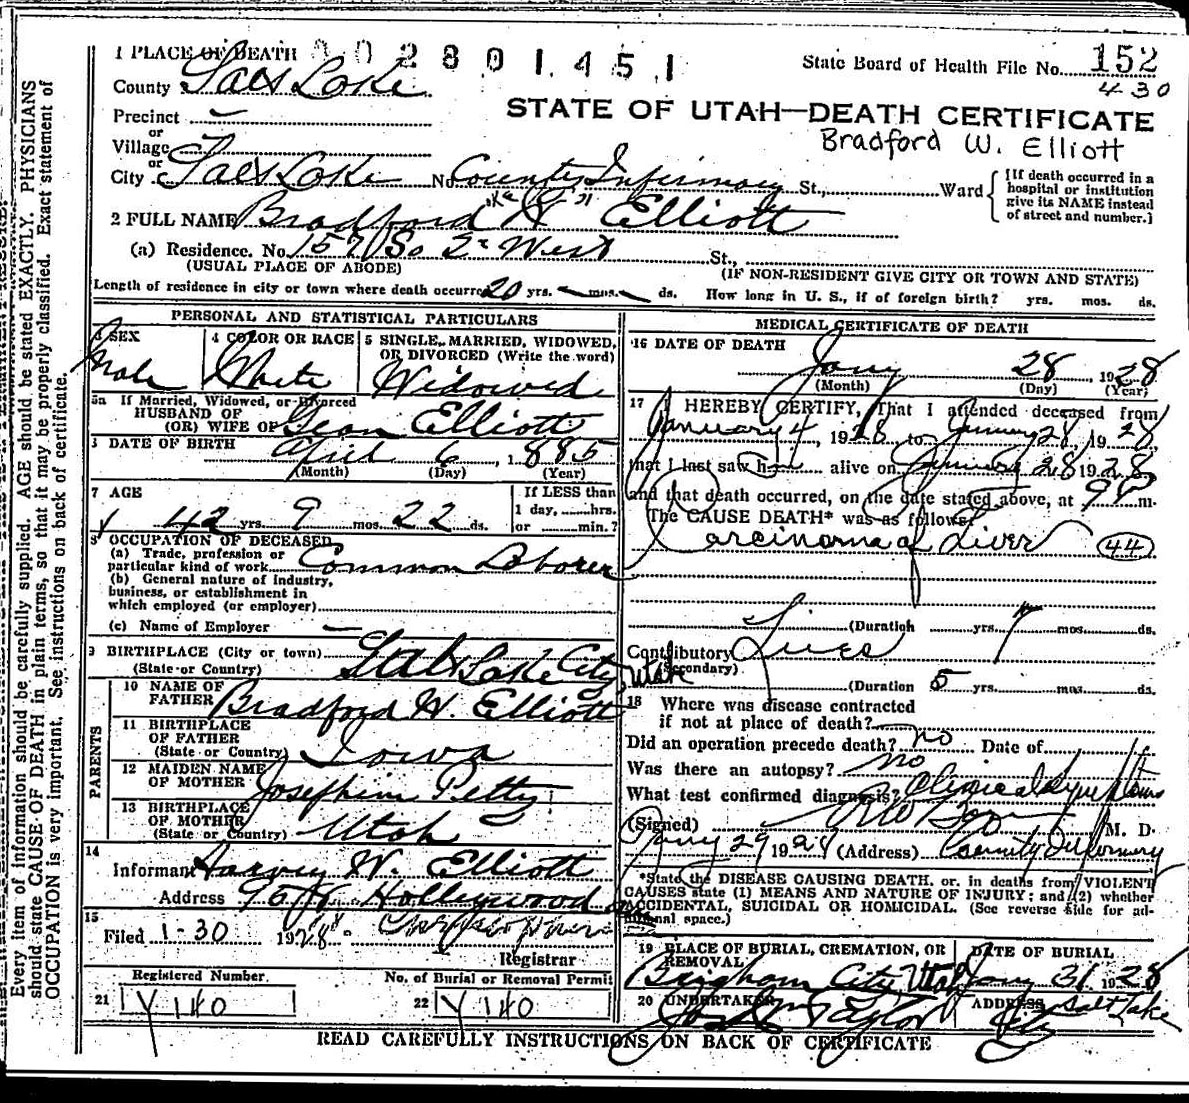 1 PLACE OF DEATH 002801451
State Board of Health File No. 152
County Salt Lake
430
STATE OF UTAH—DEATH CERTIFICATE
Precinct —
or
Bradford W. Elliott
Village
or
City Salt Lake No. County Infirmary St., Ward
{If death occurred in a
hospital or institution
give its NAME instead
of street and number.}
2 FULL NAME Bradford W Elliott
(a) Residence. No. 157 So 2nd West St.,
(USUAL PLACE OF ABODE) (IF NON-RESIDENT GIVE CITY OR TOWN AND STATE)
Length of residence in city or town where death occurred 20 yrs. — mos. — ds. How long in U. S., if of foreign birth? yrs. mos. ds.
PERSONAL AND STATISTICAL PARTICULARS
3 SEX
Male
4 COLOR OR RACE
White
5 SINGLE, MARRIED, WIDOWED,
OR DIVORCED (Write the word)
Widowed
5a If Married, Widowed, or Divorced
HUSBAND OF
(OR) WIFE OF Elliott
DATE OF BIRTH April 6, 1885
(Month) (Day) (Year)
7 AGE
42 yrs. 9 mos. 22 ds.
If LESS than
1 day, hrs.
or min.?
8 OCCUPATION OF DECEASED
(a) Trade, profession or
particular kind of work Common Laborer
(b) General nature of industry,
business, or establishment in
which employed (or employer)
(c) Name of Employer —
9 BIRTHPLACE (City or town) Salt Lake City
(State or Country) Utah
PARENTS
10 NAME OF
FATHER Bradford W. Elliott
11 BIRTHPLACE
OF FATHER
(State or Country) Iowa
12 MAIDEN NAME
OF MOTHER Josephine Petty
13 BIRTHPLACE
OF MOTHER
(State or Country) Utah
14
Informant Harvey W. Elliott
Address Hollywood
15
Filed 1-30 1928
Registrar
Registered Number
21 Y 140
No. of Burial or Removal Permit
22 Y 140
MEDICAL CERTIFICATE OF DEATH
16 DATE OF DEATH
Jany 28, 1928
(Month) (Day) (Year)
17 I HEREBY CERTIFY, That I attended deceased from
January 4, 1928 to January 28 1928
that I last saw him alive on January 28 1928
and that death occurred, on the date stated above, at 9 P m.
The CAUSE DEATH* was as follows:
Carcinoma of Liver 44
(Duration yrs. 7 mos. ds.
Contributory Lues
(Secondary)
(Duration 5 yrs. mos. ds.
18 Where was disease contracted
if not at place of death?
Did an operation precede death? no Date of
Was there an autopsy? no
What test confirmed diagnosis? Clinical Symptoms
(Signed) M. D.
Jany 29 1928 (Address) County Infirmary
*State the DISEASE CAUSING DEATH, or, in deaths from VIOLENT
CAUSES state (1) MEANS AND NATURE OF INJURY; and (2) whether
ACCIDENTAL, SUICIDAL OR HOMICIDAL. (See reverse side for ad-
ditional space.)
19 PLACE OF BURIAL, CREMATION, OR
REMOVAL
Brigham City Utah
DATE OF BURIAL
Jany 31 1928
20 UNDERTAKER
Taylor
ADDRESS Salt Lake
City
READ CAREFULLY INSTRUCTIONS ON BACK OF CERTIFICATE
Every item of information should be carefully supplied. AGE should be stated EXACTLY. PHYSICIANS
should state CAUSE OF DEATH in plain terms, so that it may be properly classified. Exact statement of
OCCUPATION is very important. See instructions on back of certificate.